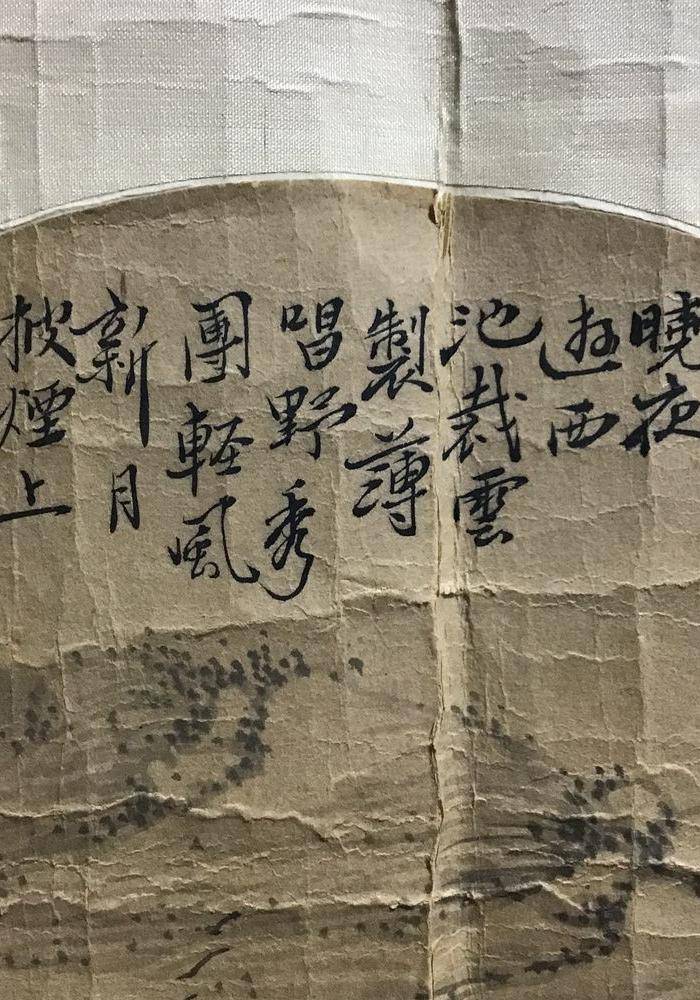 曉夜
遊西
池裁雲
製薄
唱野秀
團軽風
新月
披煙上